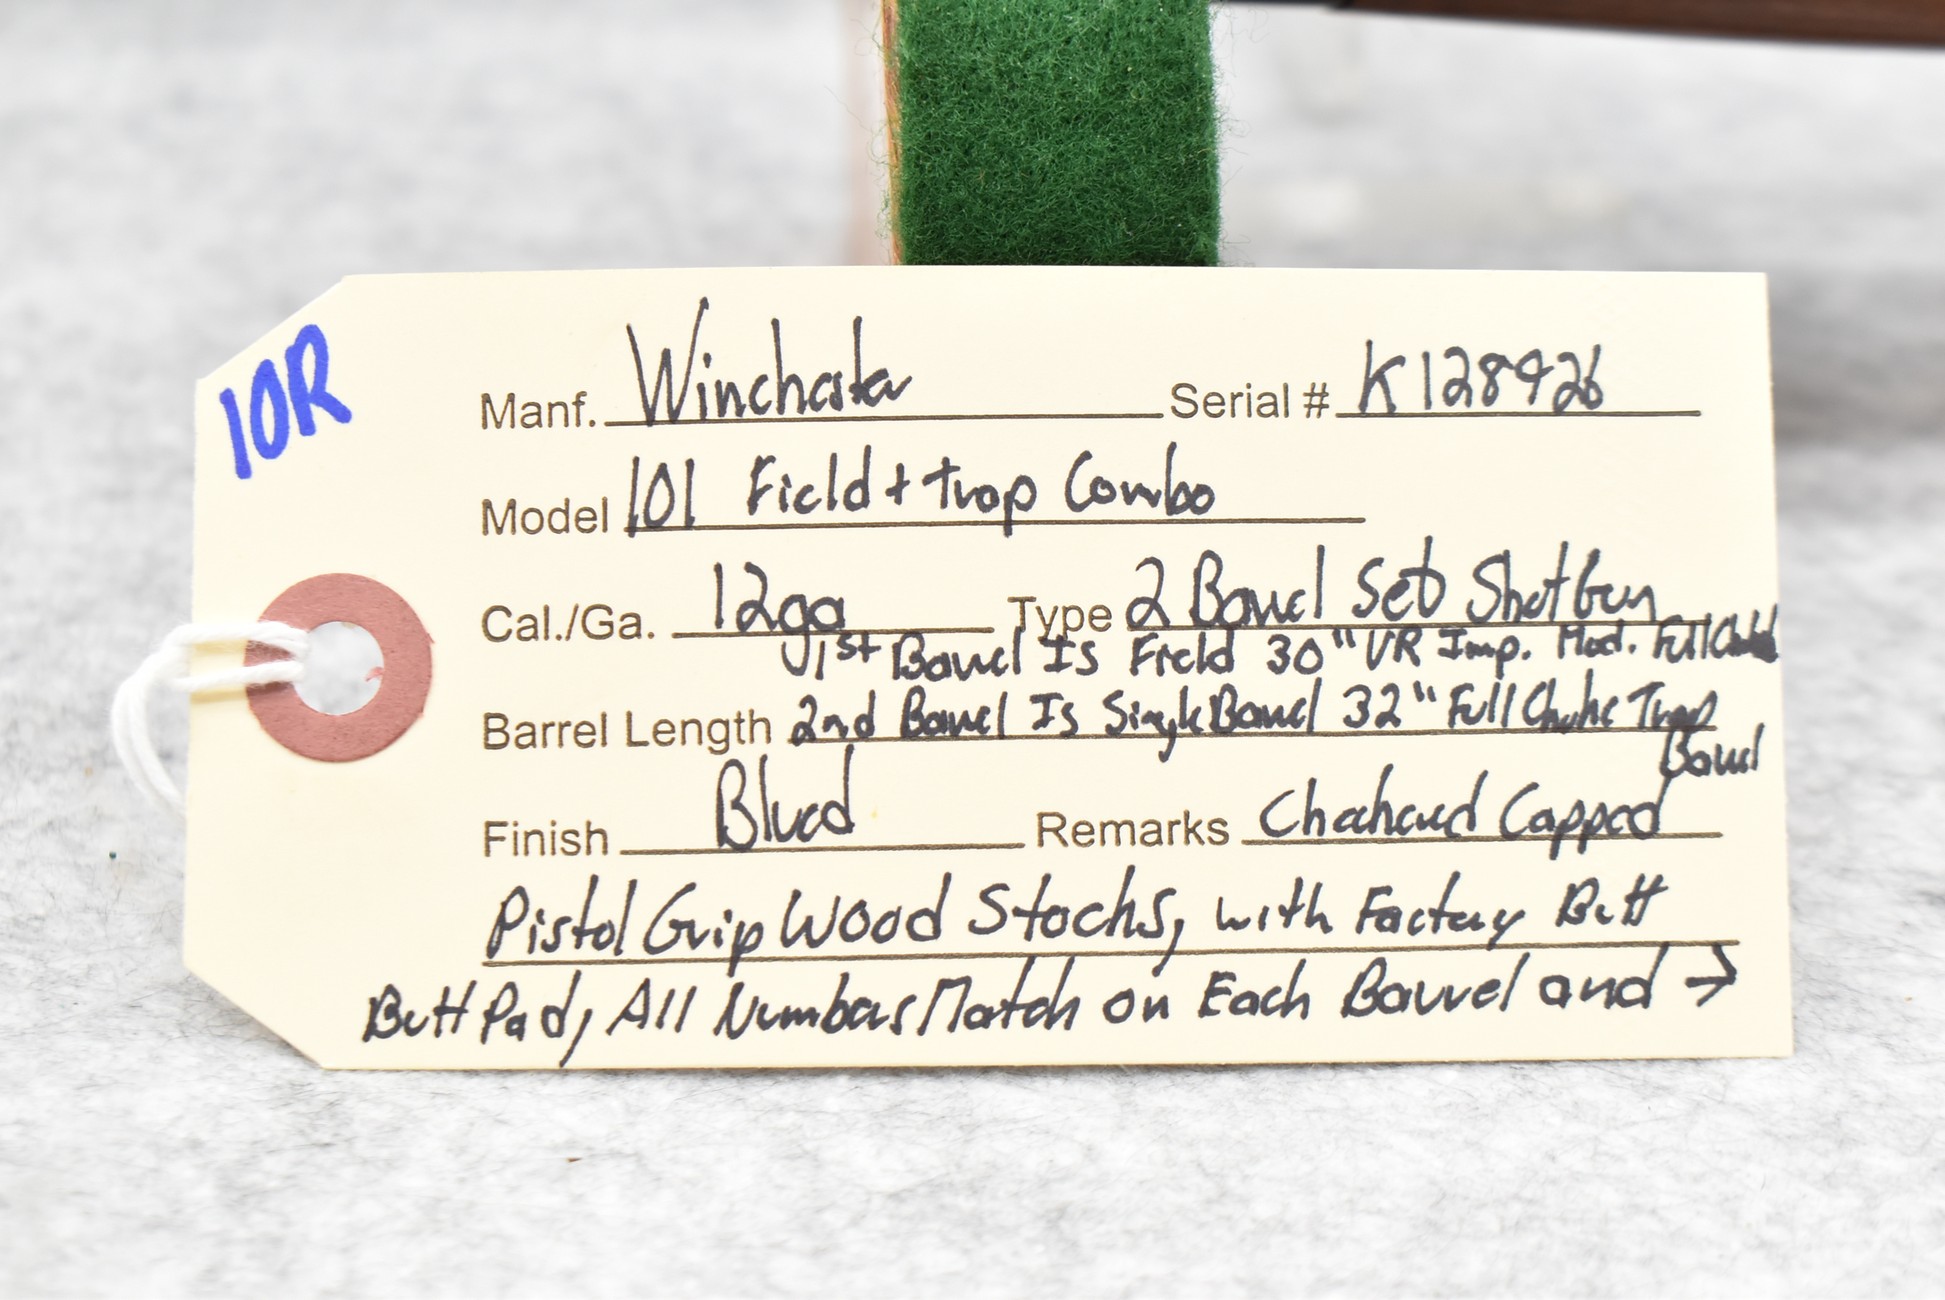 10R
Manf. Winchester Serial # K128926
Model 101 Field + Trap Combo
Cal./Ga. 12ga Type 2 Barrel Set Shotgun
1st Barrel Is Field 30" VR Imp. Mod. Full
Barrel Length 2nd Barrel Is Single Barrel 32" Full Choke Trap
Barrel
Finish Blued Remarks Checkered Capped
Pistol Grip Wood Stocks, with Factory Butt
Butt Pad, All Numbers Match on Each Barrel and →